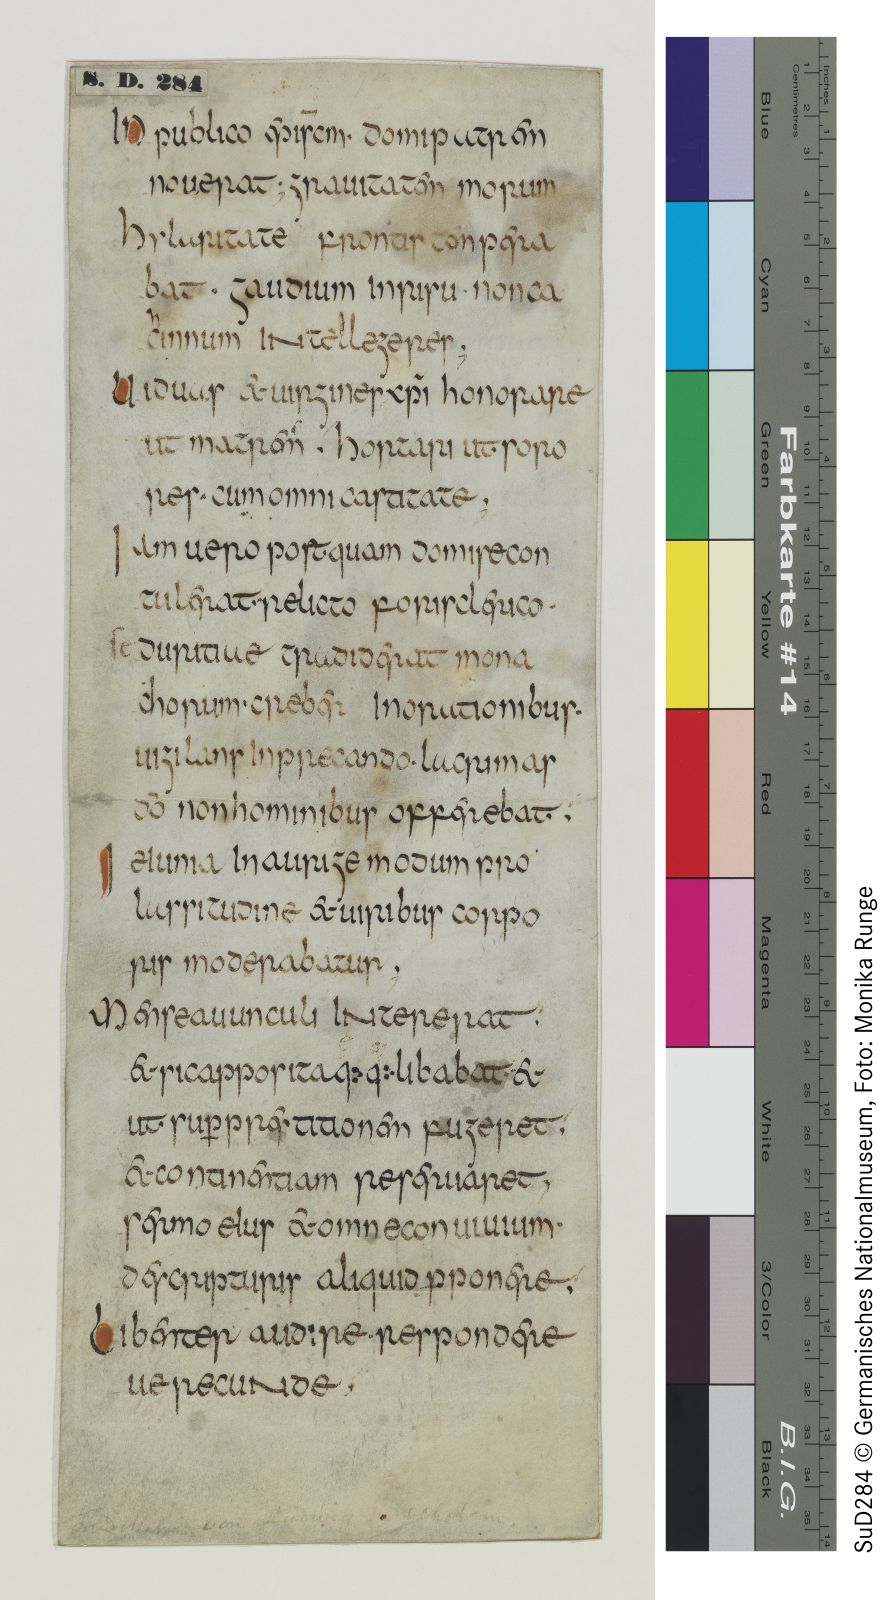 S. D. 284
In publico ep̄isc̄m· domi patrem
nouerat; grauitatem morum
hylaritate frontis temperа
bat · gaudium in risu · non ca
c̓innum intellegeres;
Uiduas & uirgines xp̄i honorare
ut matrem̄ · hortari ut soro
res · cum omni castitate;
Iam uero postquam domi se con
tulerat · relicto foris clerico ·
se duritiae tradiderat mona
chorum · creber in orationibus ·
uigilans in precando · lacrimas
dō non hominibus offerebat ·
Ieiunia in aurige modum pro
lassitudine & uiribus corpo
ris moderabatur;
Mense auunculi intererat ·
& sic apposita q:q: libabat · &
ut superstitionem fugeret ·
& continentiam reseruaret;
sermo eius & omne conuiuium ·
de scripturis aliquid p̱ponere ·
Libenter audire · respondere
uerecunde ·
Farbkarte #14
B.I.G.
Blue
Cyan
Green
Yellow
Red
Magenta
White
3/Color
Black
Inches
Centimetres
SuD284 © Germanisches Nationalmuseum, Foto: Monika Runge